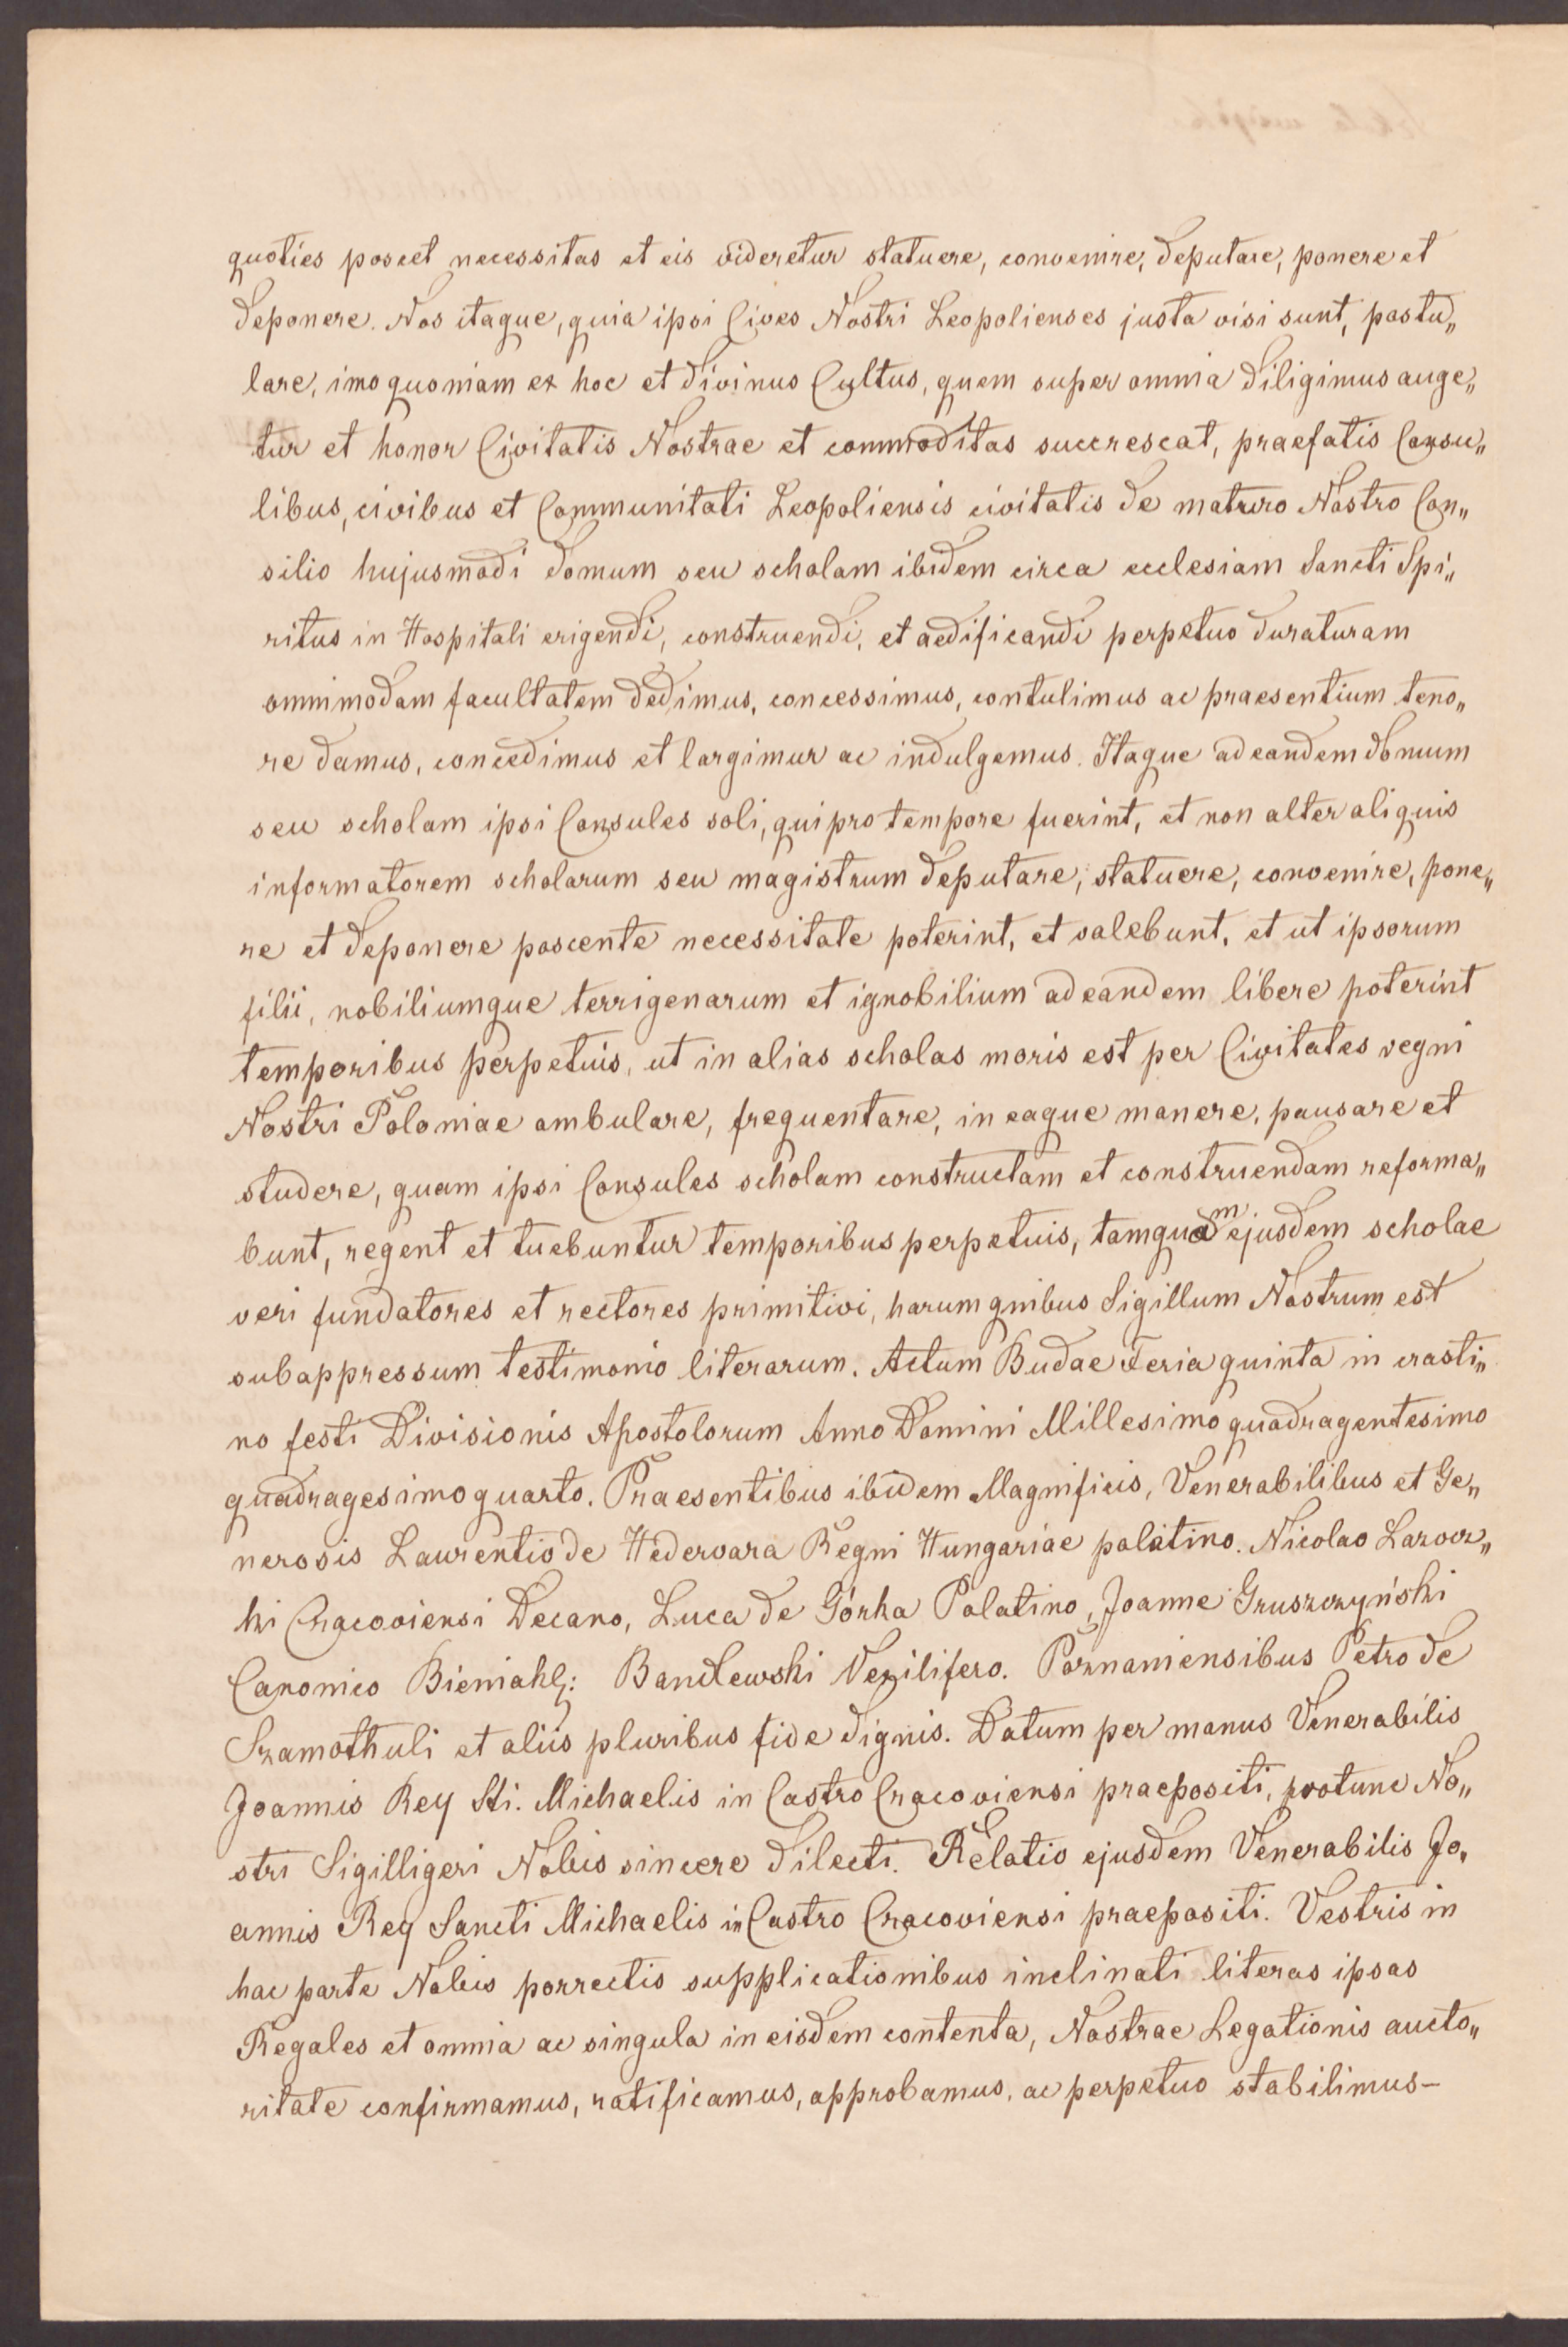 quoties poscet necessitas et eis videretur statuere, convenire, deputare, ponere et
deponere. Nos itaque, quia ipsi Cives Nostri Leopolienses justa visi sunt, postu„
lare, imo quoniam ex hoc et divinus Cultus, quem super omnia diligimus auge„
tur et honor Civitatis Nostrae et commoditas succrescat, praefatis Consu„
libus, civibus et Communitati Leopoliensis civitatis de maturo Nostro Con„
silio hujusmodi domum seu scholam ibidem circa ecclesiam Sancti Spi„
ritus in Hospitali erigendi, construendi, et aedificandi perpetuo duraturam
omnimodam facultatem dedimus, concessimus, contulimus ac praesentium teno„
re damus, concedimus et largimur ac indulgemus. Itaque ad eandem domum
seu scholam ipsi Consules soli, qui pro tempore fuerint, et non alter aliquis
informatorem scholarum seu magistrum deputare, statuere, convenire, pone„
re et deponere poscente necessitate poterint, et valebunt, et ut ipsorum
filii, nobiliumque terrigenarum et ignobilium ad eandem libere poterint
temporibus perpetuis, ut in alias scholas moris est per Civitates regni
Nostri Poloniae ambulare, frequentare, in eaque manere, pausare et
studere, quam ipsi Consules scholam constructam et construendam reforma„
bunt, regent et tuebuntur temporibus perpetuis, tamquam ejusdem scholae
veri fundatores et rectores primitivi, harum quibus Sigillum Nostrum est
subappressum testimonio literarum. Actum Budae Feria quinta in crasti„
no festi Divisionis Apostolorum Anno Domini Millesimo quadragentesimo
quadragesimo quarto. Praesentibus ibidem Magnificis, Venerabilibus et Ge„
nerosis Laurentio de Hedervara Regni Hungariae palatino. Nicolao Lazocz„
ki Cracoviensi Decano, Luca de Górka Palatino, Joanne Gruszczyński
Canonico Bieniakl: Bandlewski Vexilifero. Poznaniensibus Petro de
Szamothuli et aliis pluribus fide dignis. Datum per manus Venerabilis
Joannis Rey Sti. Michaelis in Castro Cracoviensi praepositi, protunc No„
stri Sigilligeri Nobis sincere dilecti. Relatio ejusdem Venerabilis Jo„
annis Rey Sancti Michaelis in Castro Cracoviensi praepositi. Vestris in
hac parte Nobis porrectis supplicationibus inclinati literas ipsas
Regales et omnia ac singula in eisdem contenta, Nostrae Legationis aucto„
ritate confirmamus, ratificamus, approbamus, ac perpetuo stabilimus–